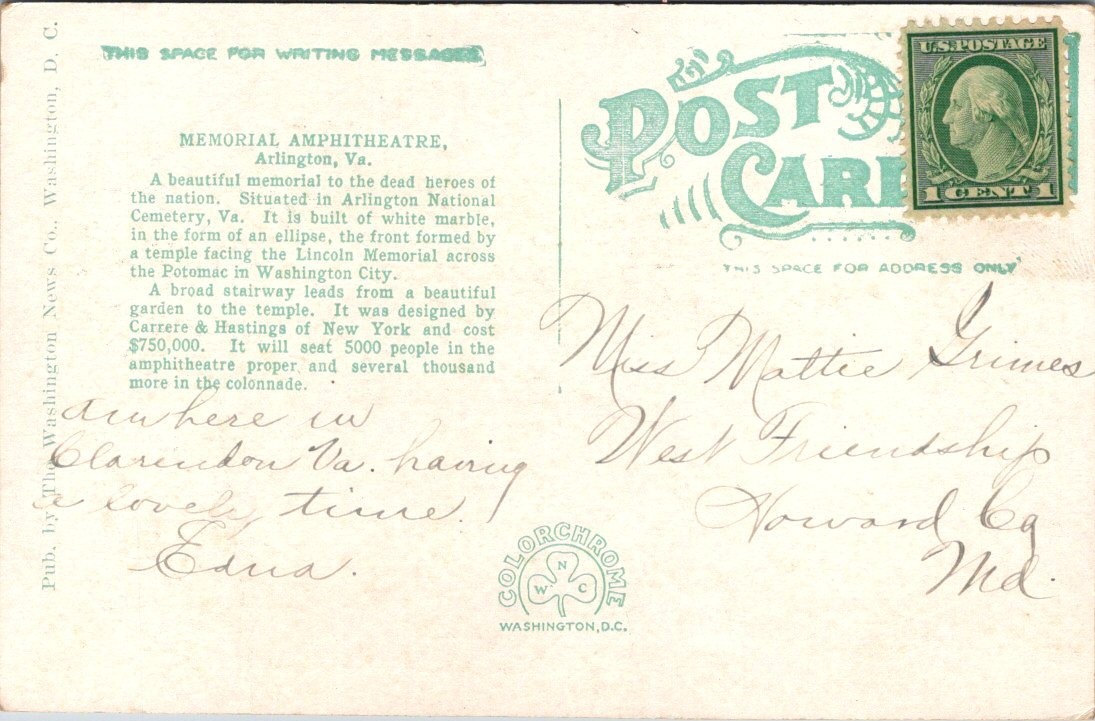 Pub. by The Washington News Co., Washington, D. C.
THIS SPACE FOR WRITING MESSAGES
MEMORIAL AMPHITHEATRE,
Arlington, Va.
A beautiful memorial to the dead heroes of
the nation. Situated in Arlington National
Cemetery, Va. It is built of white marble,
in the form of an ellipse, the front formed by
a temple facing the Lincoln Memorial across
the Potomac in Washington City.
A broad stairway leads from a beautiful
garden to the temple. It was designed by
Carrere & Hastings of New York and cost
$750,000. It will seat 5000 people in the
amphitheatre proper and several thousand
more in the colonnade.
am here in
Clarendon Va. having
a lovely time.
Edna.
COLORCHROME
W N C
WASHINGTON, D.C.
POST
CARD
U.S. POSTAGE
1 CENT 1
THIS SPACE FOR ADDRESS ONLY
Miss Mattie Grimes
West Friendship
Howard Co
Md.